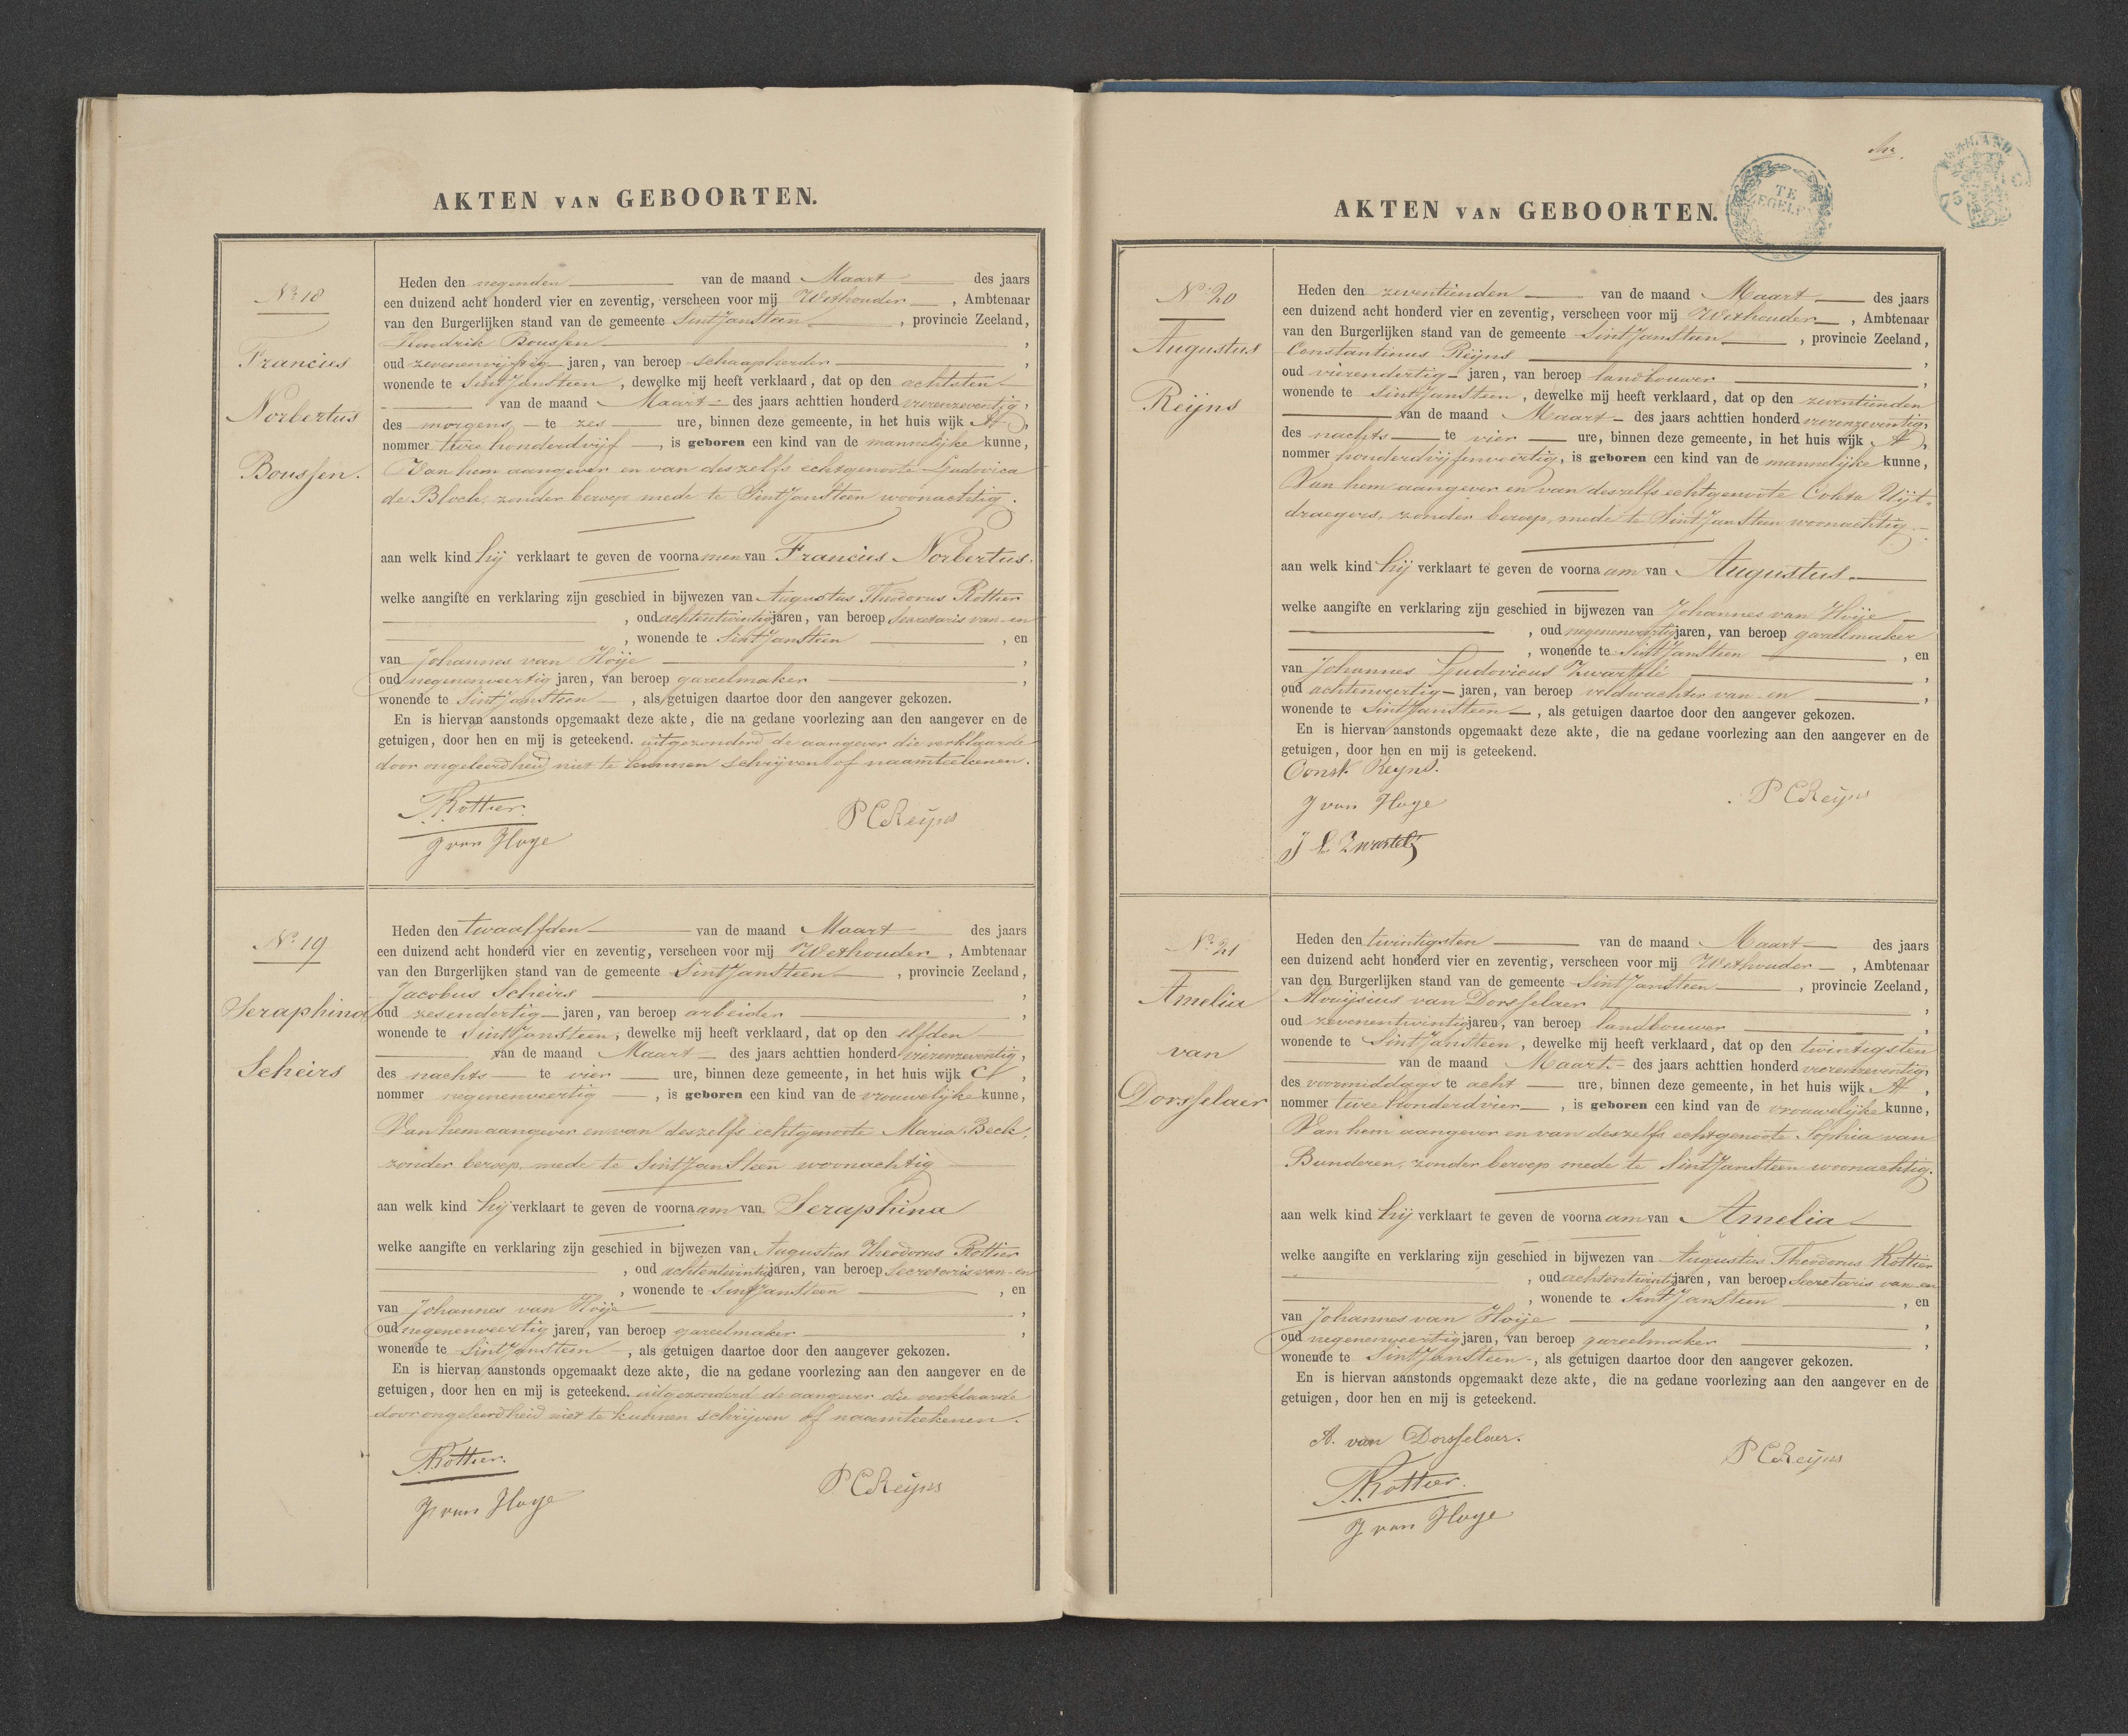 AKTEN VAN GEBOORTEN.
No 18
Francies
Norbertus
Boussen.
Heden den negenden van de maand Maart des jaars
een duizend acht honderd vier en zeventig, verscheen voor mij Wethouder, Ambtenaar
van den Burgerlijken stand van de gemeente SintJanSteen, provincie Zeeland,
Hendrik Boussen,
oud zevenenvijftig jaren, van beroep schaapherder,
wonende te SintJanSteen, dewelke mij heeft verklaard, dat op den achtsten
van de maand Maart des jaars achttien honderd vierenzeventig,
des morgens te zes ure, binnen deze gemeente, in het huis wijk A,
nommer twee honderd vijf, is geboren een kind van de mannelijke kunne,
Van hem aangever en van deszelfs echtgenoote Ludovica
de Block, zonder beroep mede te SintJanSteen woonachtig.
aan welk kind hij verklaart te geven de voornamen van Francies Norbertus.
welke aangifte en verklaring zijn geschied in bijwezen van Augustus Theodorus Rottier
, oud achtentwintig jaren, van beroep Secretaris van en
, wonende te SintJanSteen, en
van Johannes van Hoije,
oud negenenveertig jaren, van beroep gareelmaker,
wonende te SintJanSteen, als getuigen daartoe door den aangever gekozen.
En is hiervan aanstonds opgemaakt deze akte, die na gedane voorlezing aan den aangever en de
getuigen, door hen en mij is geteekend. uitgezonderd de aangever die verklaarde
door ongeleerdheid niet te kunnen schrijven of naamteekenen.
A.Rottier.
P C Reijns
J van Hoye
No 19
Seraphina
Scheirs
Heden den twaalfden van de maand Maart des jaars
een duizend acht honderd vier en zeventig, verscheen voor mij Wethouder, Ambtenaar
van den Burgerlijken stand van de gemeente SintJanSteen, provincie Zeeland,
Jacobus Scheirs,
oud zesendertig jaren, van beroep arbeider,
wonende te SintJanSteen, dewelke mij heeft verklaard, dat op den elfden
van de maand Maart des jaars achttien honderd vierenzeventig,
des nachts te vier ure, binnen deze gemeente, in het huis wijk,
nommer negenenveertig, is geboren een kind van de vrouwelijke kunne,
Van hem aangever en van deszelfs echtgenoote Maria Beck,
zonder beroep, mede te SintJanSteen woonachtig
aan welk kind hij verklaart te geven de voornaam van Seraphina
welke aangifte en verklaring zijn geschied in bijwezen van Augustus Theodorus Rottier
, oud achtentwintig jaren, van beroep Secretaris van en
, wonende te SintJanSteen, en
van Johannes van Hoije,
oud negenenveertig jaren, van beroep gareelmaker,
wonende te SintJanSteen, als getuigen daartoe door den aangever gekozen.
En is hiervan aanstonds opgemaakt deze akte, die na gedane voorlezing aan den aangever en de
getuigen, door hen en mij is geteekend. uitgezonderd de aangever die verklaarde
door ongeleerdheid niet te kunnen schrijven of naamteekenen.
A.Rottier.
P C Reijns
J van Hoye
AKTEN VAN GEBOORTEN.
TE ZEGELEN
No 20
Augustus
Reijns
Heden den zeventienden van de maand Maart des jaars
een duizend acht honderd vier en zeventig, verscheen voor mij Wethouder, Ambtenaar
van den Burgerlijken stand van de gemeente SintJanSteen, provincie Zeeland,
Constantinus Reijns,
oud vierendertig jaren, van beroep landbouwer,
wonende te SintJanSteen, dewelke mij heeft verklaard, dat op den zeventienden
van de maand Maart des jaars achttien honderd vierenzeventig,
des nachts te vier ure, binnen deze gemeente, in het huis wijk A,
nommer honderd vijfenveertig, is geboren een kind van de mannelijke kunne,
Van hem aangever en van deszelfs echtgenoote Coleta Uijt-
draegers, zonder beroep, mede te SintJanSteen woonachtig.
aan welk kind hij verklaart te geven de voornaam van Augustus.
welke aangifte en verklaring zijn geschied in bijwezen van Johannes van Hoije
, oud negenenveertig jaren, van beroep gareelmaker
, wonende te SintJanSteen, en
van Johannes Ludovicus Zwartelé,
oud achtenveertig jaren, van beroep veldwachter van en,
wonende te SintJanSteen, als getuigen daartoe door den aangever gekozen.
En is hiervan aanstonds opgemaakt deze akte, die na gedane voorlezing aan den aangever en de
getuigen, door hen en mij is geteekend.
Const Reyns.
J van Hoye
P C Reijns
J L Zwartelé
No 21
Amelia
van
Dorsselaer
Heden den twintigsten van de maand Maart des jaars
een duizend acht honderd vier en zeventig, verscheen voor mij Wethouder, Ambtenaar
van den Burgerlijken stand van de gemeente SintJanSteen, provincie Zeeland,
Alouijsius van Dorsselaer,
oud zevenentwintig jaren, van beroep landbouwer,
wonende te SintJanSteen, dewelke mij heeft verklaard, dat op den twintigsten
van de maand Maart des jaars achttien honderd vierenzeventig,
des voormiddags te acht ure, binnen deze gemeente, in het huis wijk A,
nommer twee honderd vier, is geboren een kind van de vrouwelijke kunne,
Van hem aangever en van deszelfs echtgenoote Sophia van
Bunderen, zonder beroep mede te SintJanSteen woonachtig.
aan welk kind hij verklaart te geven de voornaam van Amelia
welke aangifte en verklaring zijn geschied in bijwezen van Augustus Theodorus Rottier
, oud achtentwintig jaren, van beroep Secretaris van en
, wonende te SintJanSteen, en
van Johannes van Hoije,
oud negenenveertig jaren, van beroep gareelmaker,
wonende te SintJanSteen, als getuigen daartoe door den aangever gekozen.
En is hiervan aanstonds opgemaakt deze akte, die na gedane voorlezing aan den aangever en de
getuigen, door hen en mij is geteekend.
A. van Dorsselaer.
P C Reijns
A.Rottier.
J van Hoye